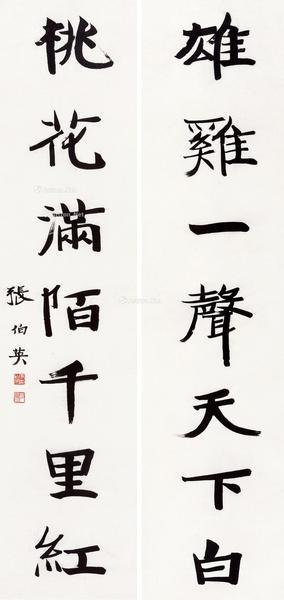 雄雞一聲天下白
桃花滿陌千里紅
張伯英